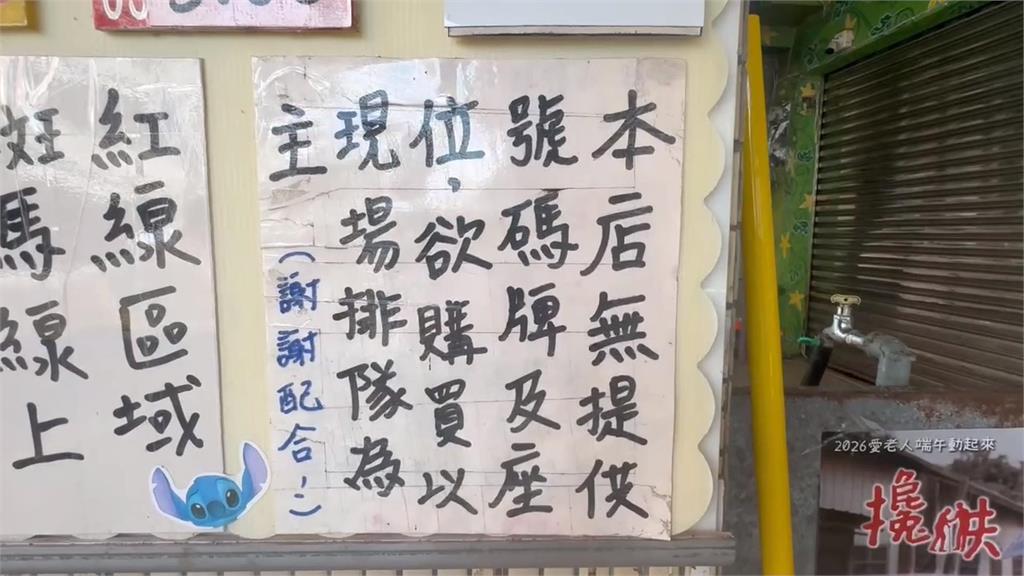 本店無提供
號碼牌及座
位，欲購買以
現場排隊為
主
（謝謝配合！）
紅線區域
馬線上
2026愛老人端午動起來
攙供